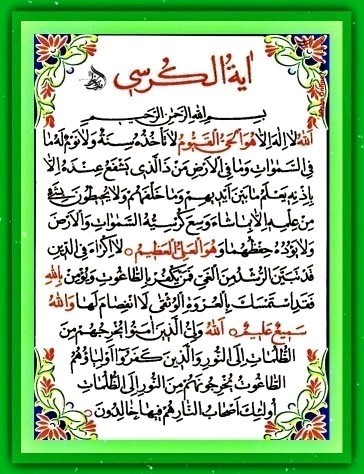 آیة الکرسی
بِسْمِ اللهِ الرَّحْمٰنِ الرَّحِیمِ
اَللهُ لا اِلهَ اِلاّ هُوَ الْحَیُّ الْقَیُّومُ لا تَأخُذُهُ سِنَةٌ وَلا نَوْمٌ لَهُ ما
فِی السَّمٰواتِ وَما فِی الْاَرْضِ مَنْ ذَا الَّذی یَشْفَعُ عِنْدَهُ اِلاّ
بِاِذْنِهِ یَعْلَمُ ما بَیْنَ اَیْدیهِمْ وَما خَلْفَهُمْ وَلا یُحیطُونَ بِشَیْءٍ
مِنْ عِلْمِهِ اِلاّ بِما شاءَ وَسِعَ کُرْسِیُّهُ السَّمٰواتِ وَالْاَرْضَ
وَلا یَؤُدُهُ حِفْظُهُما وَهُوَ الْعَلِیُّ الْعَظیمُ لا اِکْراهَ فِی الدّینِ
قَدْ تَبَیَّنَ الرُّشْدُ مِنَ الْغَیِّ فَمَنْ یَکْفُرْ بِالطّاغُوتِ وَیُؤْمِنْ بِاللهِ
فَقَدِ اسْتَمْسَکَ بِالْعُرْوَةِ الْوُثْقی لَا انْفِصامَ لَها وَاللهُ
سَمیعٌ عَلیمٌ اَللهُ وَلِیُّ الَّذینَ امَنُوا یُخْرِجُهُمْ مِنَ
الظُّلُماتِ اِلَی النُّورِ وَالَّذینَ کَفَرُوا اَوْلِیاؤُهُمُ
الطّاغُوتُ یُخْرِجُونَهُمْ مِنَ النُّورِ اِلَی الظُّلُماتِ
اُولئِکَ اَصْحابُ النّارِ هُمْ فیها خالِدُونَ